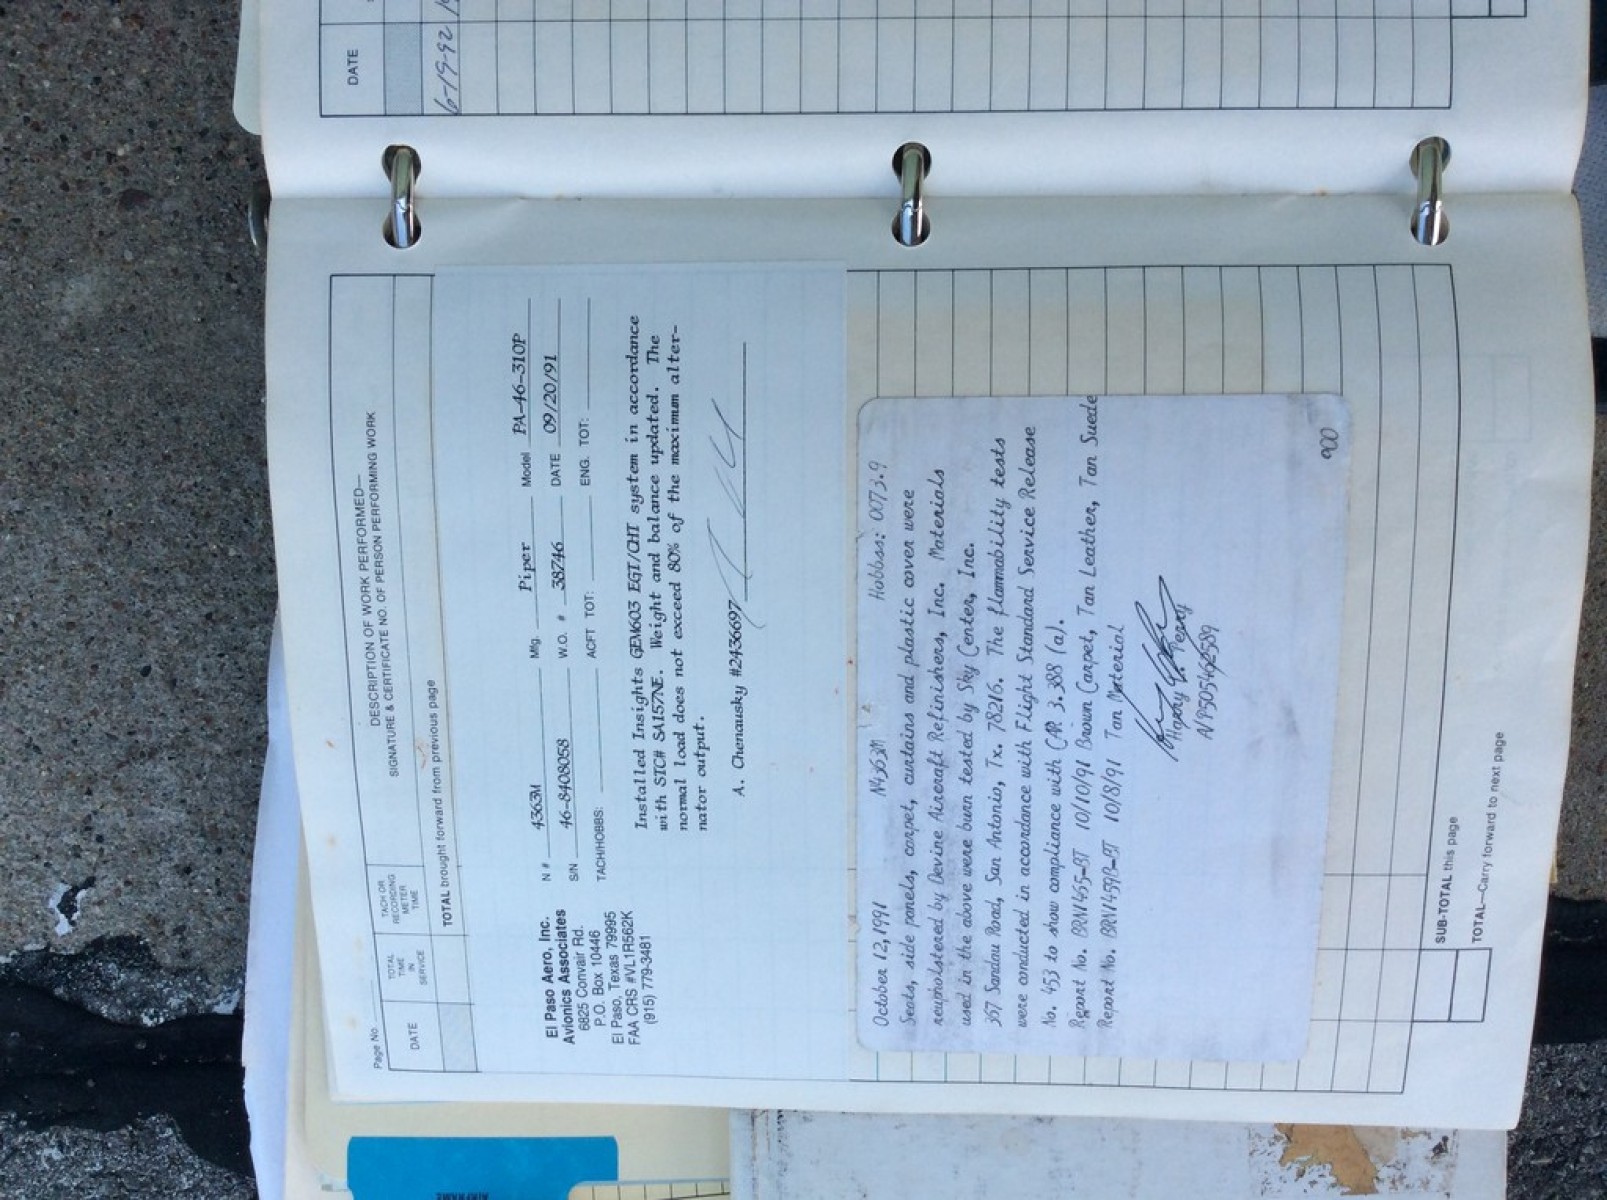 DATE
6-19-92
Page No.
DATE
TOTAL
TIME
IN
SERVICE
TACH OR
RECORDING
METER
TIME
DESCRIPTION OF WORK PERFORMED—
SIGNATURE & CERTIFICATE NO. OF PERSON PERFORMING WORK
TOTAL brought forward from previous page
El Paso Aero, Inc.
Avionics Associates
6825 Convair Rd.
P.O. Box 10446
El Paso, Texas 79995
FAA CRS #VL1R562K
(915) 779-3481
N # 4363M Mfg. Piper Model PA-46-310P
S/N 46-8408058 W.O. # 38746 DATE 09/20/91
TACH/HOBBS: ACFT TOT: ENG. TOT:
Installed Insights GEM603 EGT/CHT system in accordance
with STC# SA157NE. Weight and balance updated. The
normal load does not exceed 80% of the maximum alter-
nator output.
A. Chenausky #2436697
October 12,1991 N4363M Hobbss: 0073.9
Seats, side panels, carpet, curtains and plastic cover were
reupholstered by Devine Aircraft Refinishers, Inc. Materials
used in the above were burn tested by Sky Center, Inc.
367 Sandau Road, San Antonio, Tx. 78216. The flammability tests
were conducted in accordance with Flight Standard Service Release
No. 453 to show compliance with CAR 3.388 (a).
Report No. BRN1465-BT 10/10/91 Brown Carpet, Tan Leather, Tan Suede
Report No. BRN1459B-BT 10/8/91 Tan Material
Harry Perry
AP505462589
900
SUB-TOTAL this page
TOTAL—Carry forward to next page